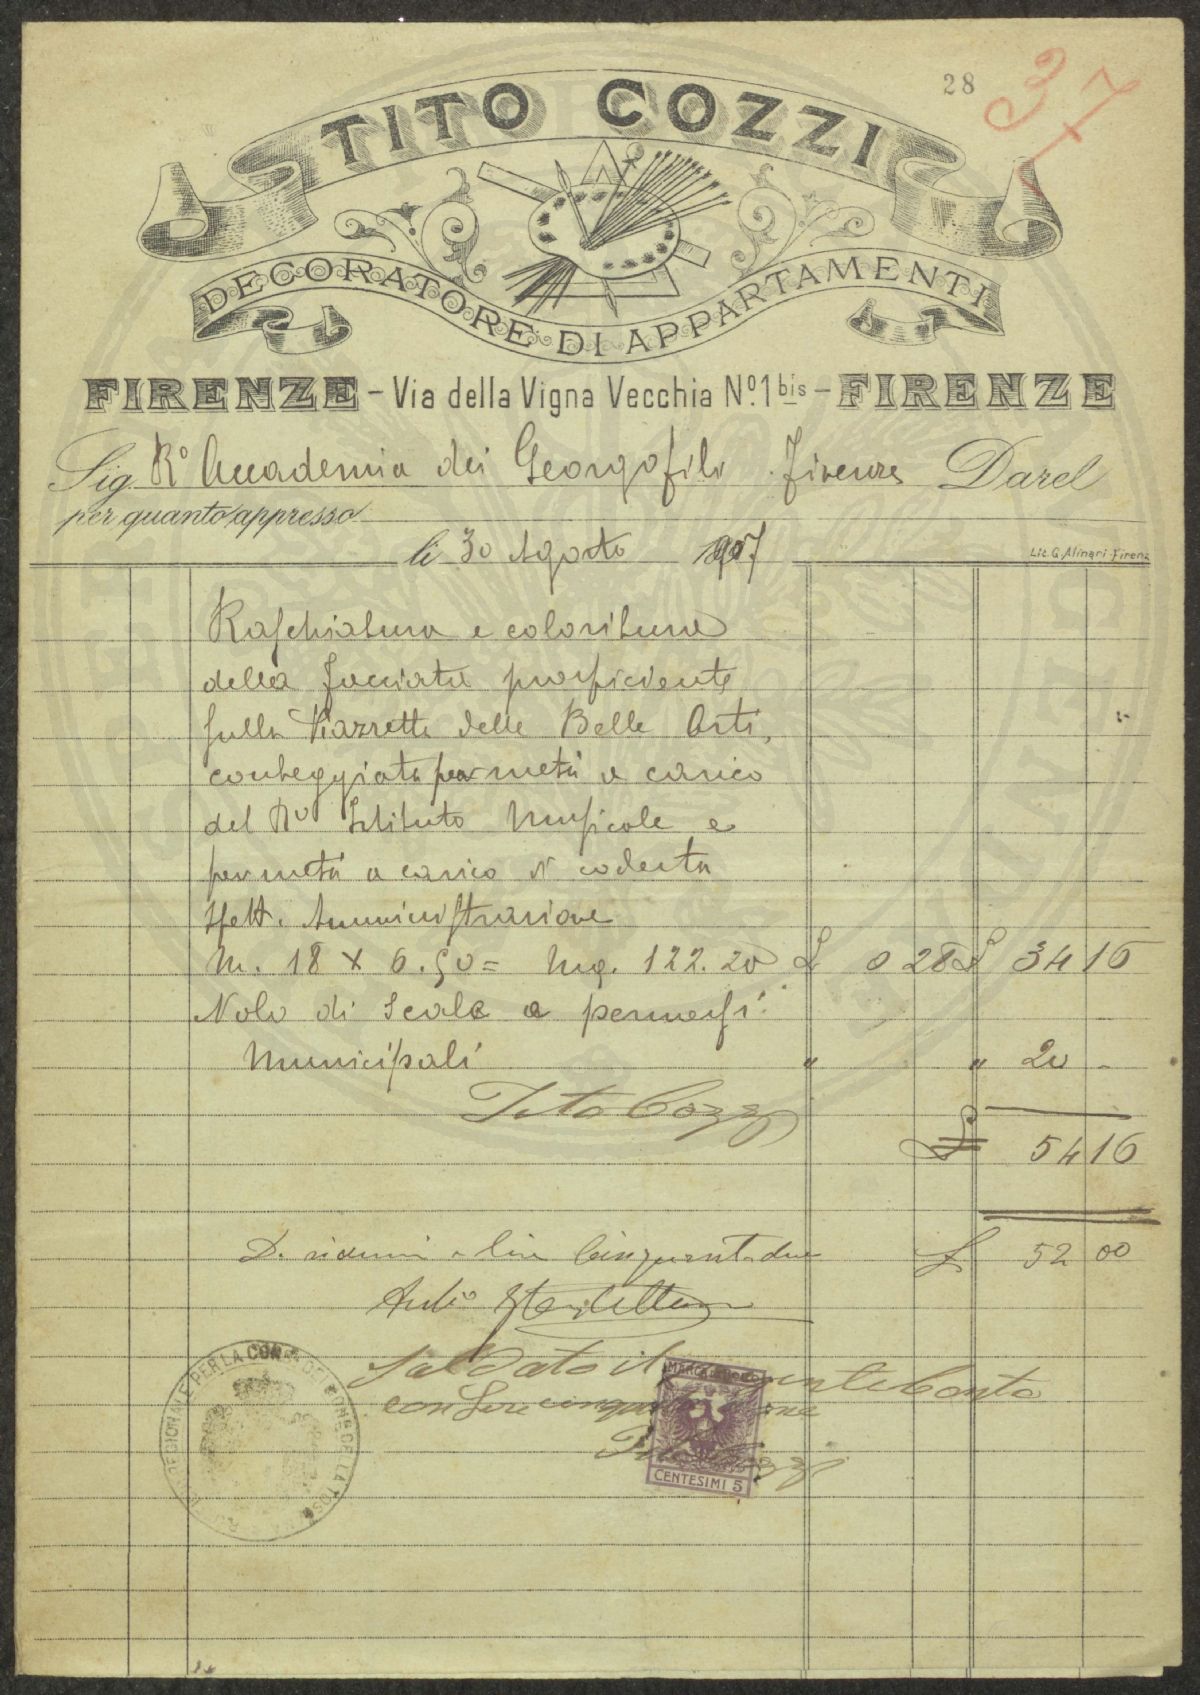 28
37
TITO COZZI
DECORATORE DI APPARTAMENTI
FIRENZE - Via della Vigna Vecchia Nº. 1 bis - FIRENZE
Sig. Rº Accademia dei Georgofili. Firenze Darel
per quanto appresso
li 30 Agosto 1907
Lit. G. Alinari-Firenz
Raschiatura e coloritura
della facciata prospiciente
sulla Piazzetta delle Belle Arti,
conteggiata per metà a carico
del Rº Istituto Musicale e
per metà a carico di codesta
Spett. Amministrazione
M. 18 x 6.50 = Mq. 122.20 £ 0 28 £ 34 16
Nolo di Scale e permessi
Municipali " " 20 -
Tito Cozzi
£ 54 16
D. ridursi a lire Cinquantadue £ 52 00
Saldato il presente Conto
con Lire cinquantadue
Tito Cozzi
MARCA DA BOLLO
CENTESIMI 5
REGIONALE PER LA CONS. DEI MON. DELLA TOSCANA